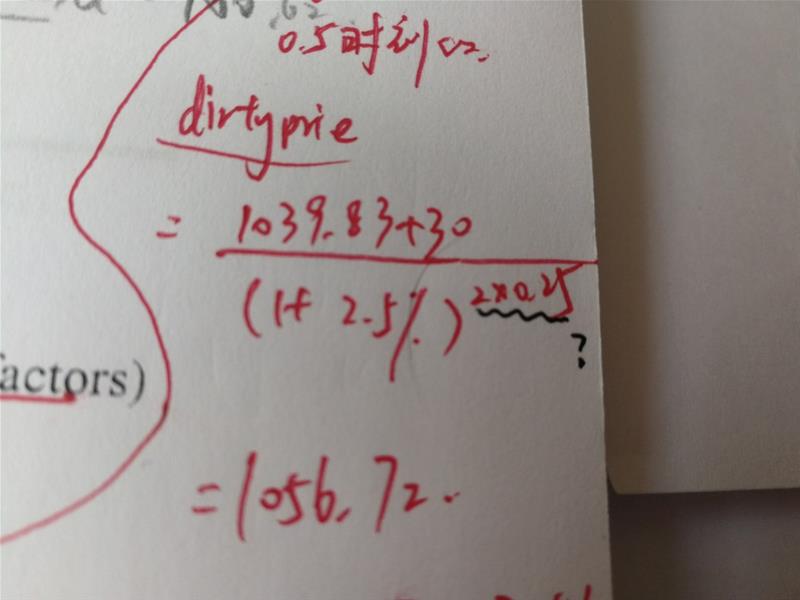 0.5时刻
dirtyprie
= 1039.83+30
(1+ 2.5%) 2×0.25
?
actors)
=1056.72.